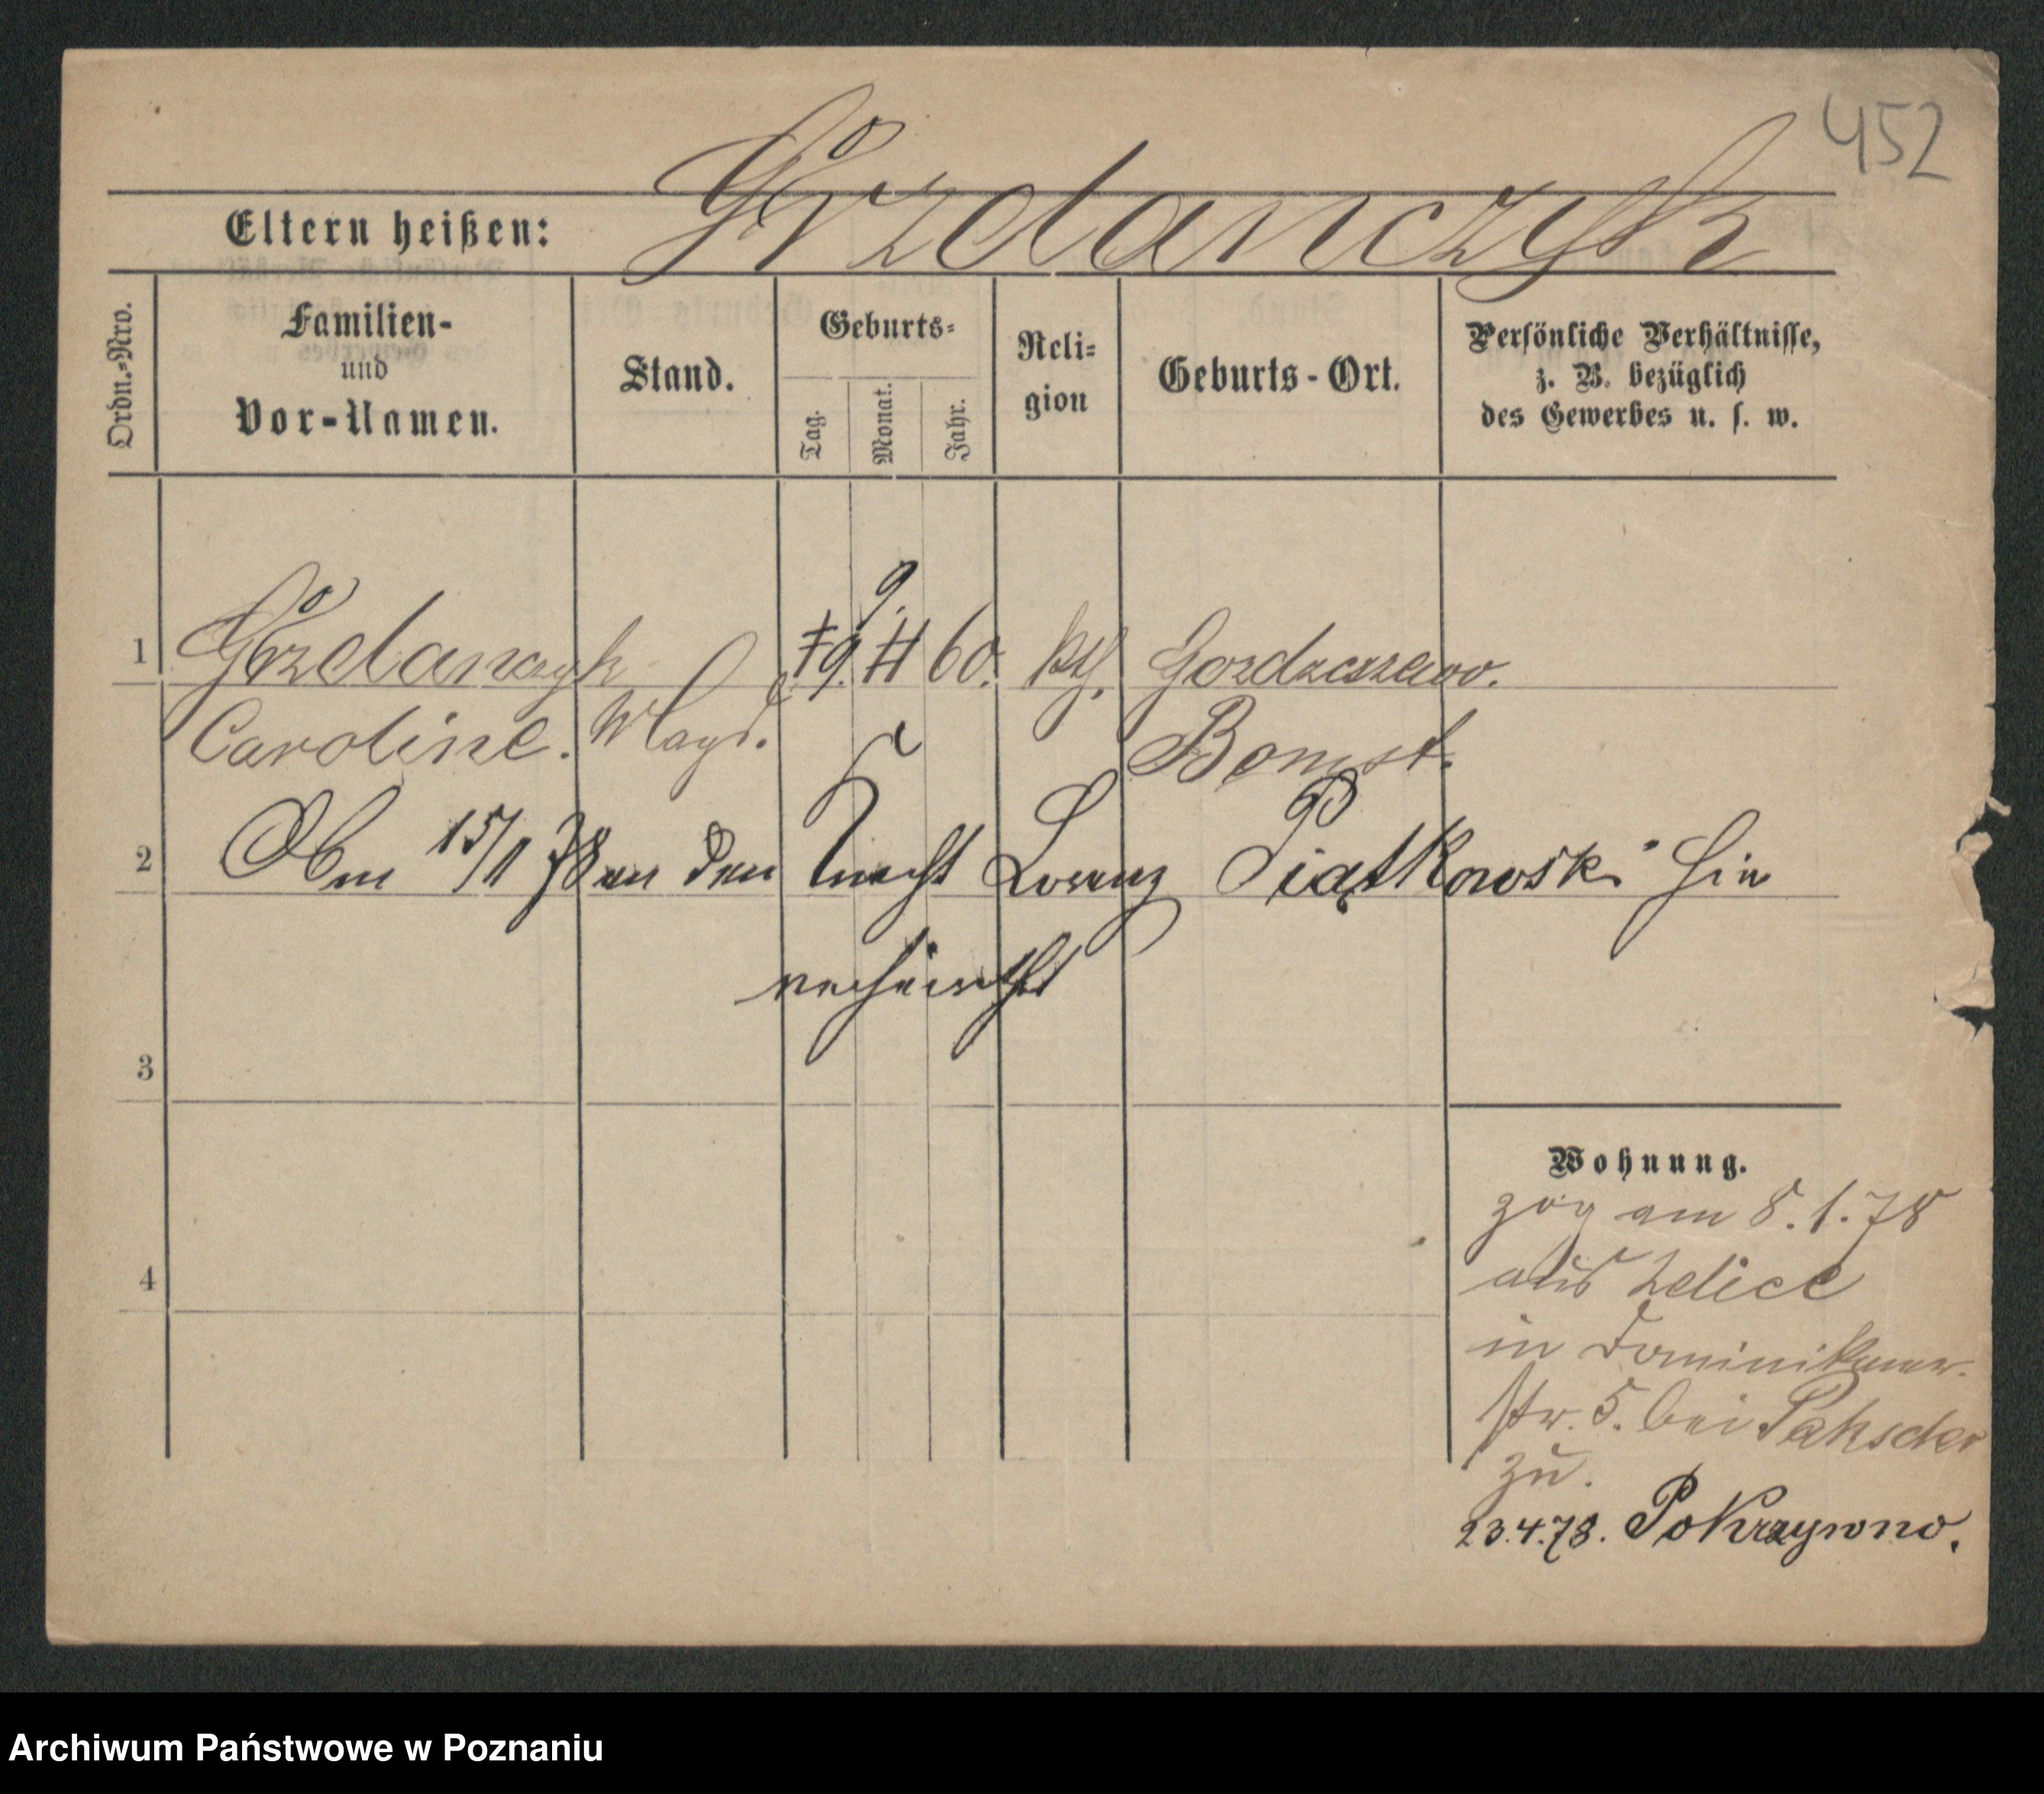 452
Eltern heißen: Gözdanczyk
Ordn.-Nro.
Familien-
und
Vor-Namen.
Stand.
Geburts-
Tag.
Monat.
Jahr.
Reli-
gion
Geburts-Ort.
Persönliche Verhältnisse,
z. B. bezüglich
des Gewerbes u. s. w.
9.
1 60. kth.
Caroline. Magd. Bomst.
2 15/1 78 an den Knecht Lorenz Piątkowski hier
verheirathet
3
4
Wohnung.
zog am 8.1.78
aus
in Dominikaner-
str. 5. bei Pakscher
zu.
23.4.78. Pokrzywno.
Archiwum Państwowe w Poznaniu